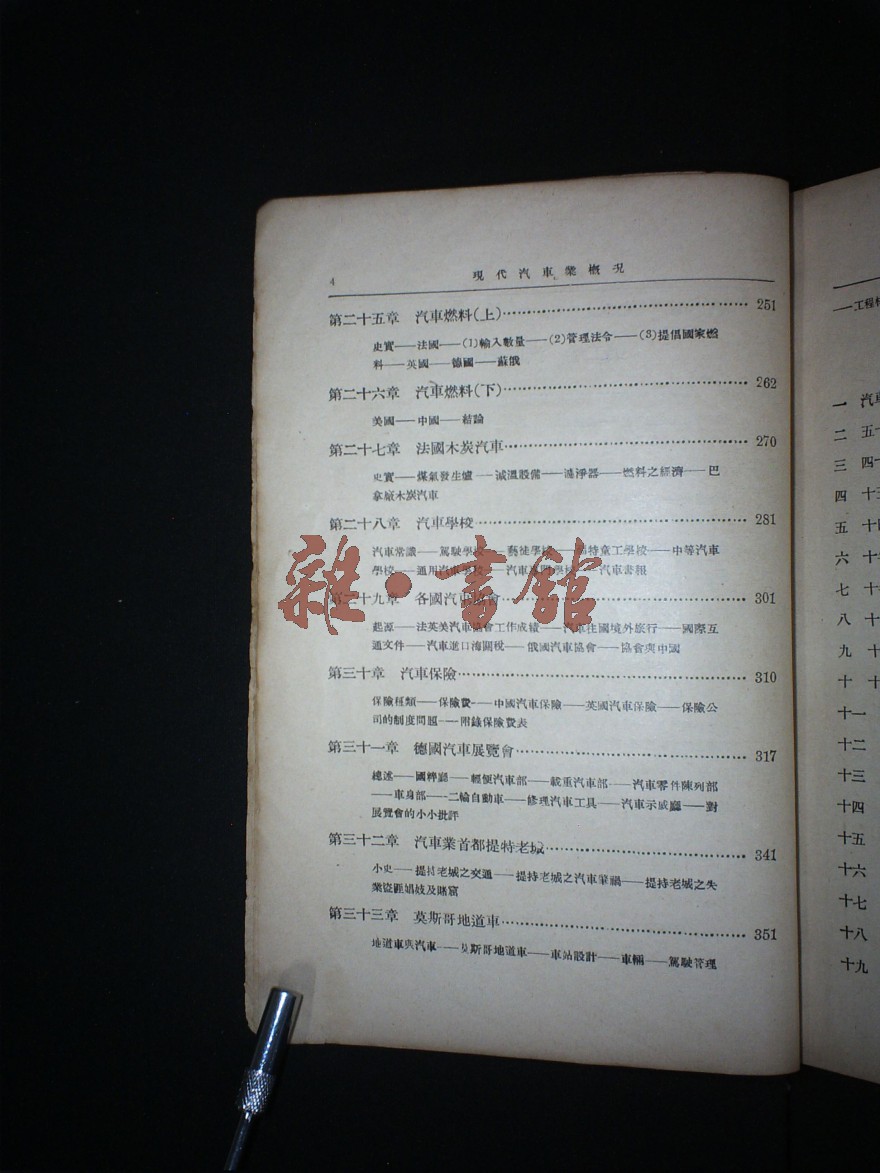 4 現代汽車業概況
第二十五章 汽車燃料(上) 251
史實——法國——(1)輸入數量——(2)管理法令——(3)提倡國家燃
料——英國——德國——蘇俄
第二十六章 汽車燃料(下) 262
美國——中國——結論
第二十七章 法國木炭汽車 270
史實——煤氣發生爐——減溫設備——濾淨器——燃料之經濟——巴
拿廠木炭汽車
第二十八章 汽車學校 281
汽車常識——駕駛學校——藝徒學校——福特童工學校——中等汽車
學校——通用汽車學校——汽車專門學校——汽車書報
第二十九章 各國汽車協會 301
起源——法英美汽車協會工作成績——汽車往國境外旅行——國際互
通文件——汽車進口海關稅——俄國汽車協會——協會與中國
第三十章 汽車保險 310
保險種類——保險費——中國汽車保險——英國汽車保險——保險公
司的制度問題——附錄保險費表
第三十一章 德國汽車展覽會 317
總述——國粹廳——輕便汽車部——載重汽車部——汽車零件陳列部
——車身部——二輪自動車——修理汽車工具——汽車示威廳——對
展覽會的小小批評
第三十二章 汽車業首都提特老城 341
小史——提持老城之交通——提持老城之汽車肇禍——提持老城之失
業盜匪娼妓及賭窟
第三十三章 莫斯哥地道車 351
地道車與汽車——莫斯哥地道車——車站設計——車輛——駕駛管理
雜·書館
——工程
一 汽車
二 五十
三 四十
四 十五
五 十四
六 十
七 十
八 十
九 十
十 十
十一
十二
十三
十四
十五
十六
十七
十八
十九